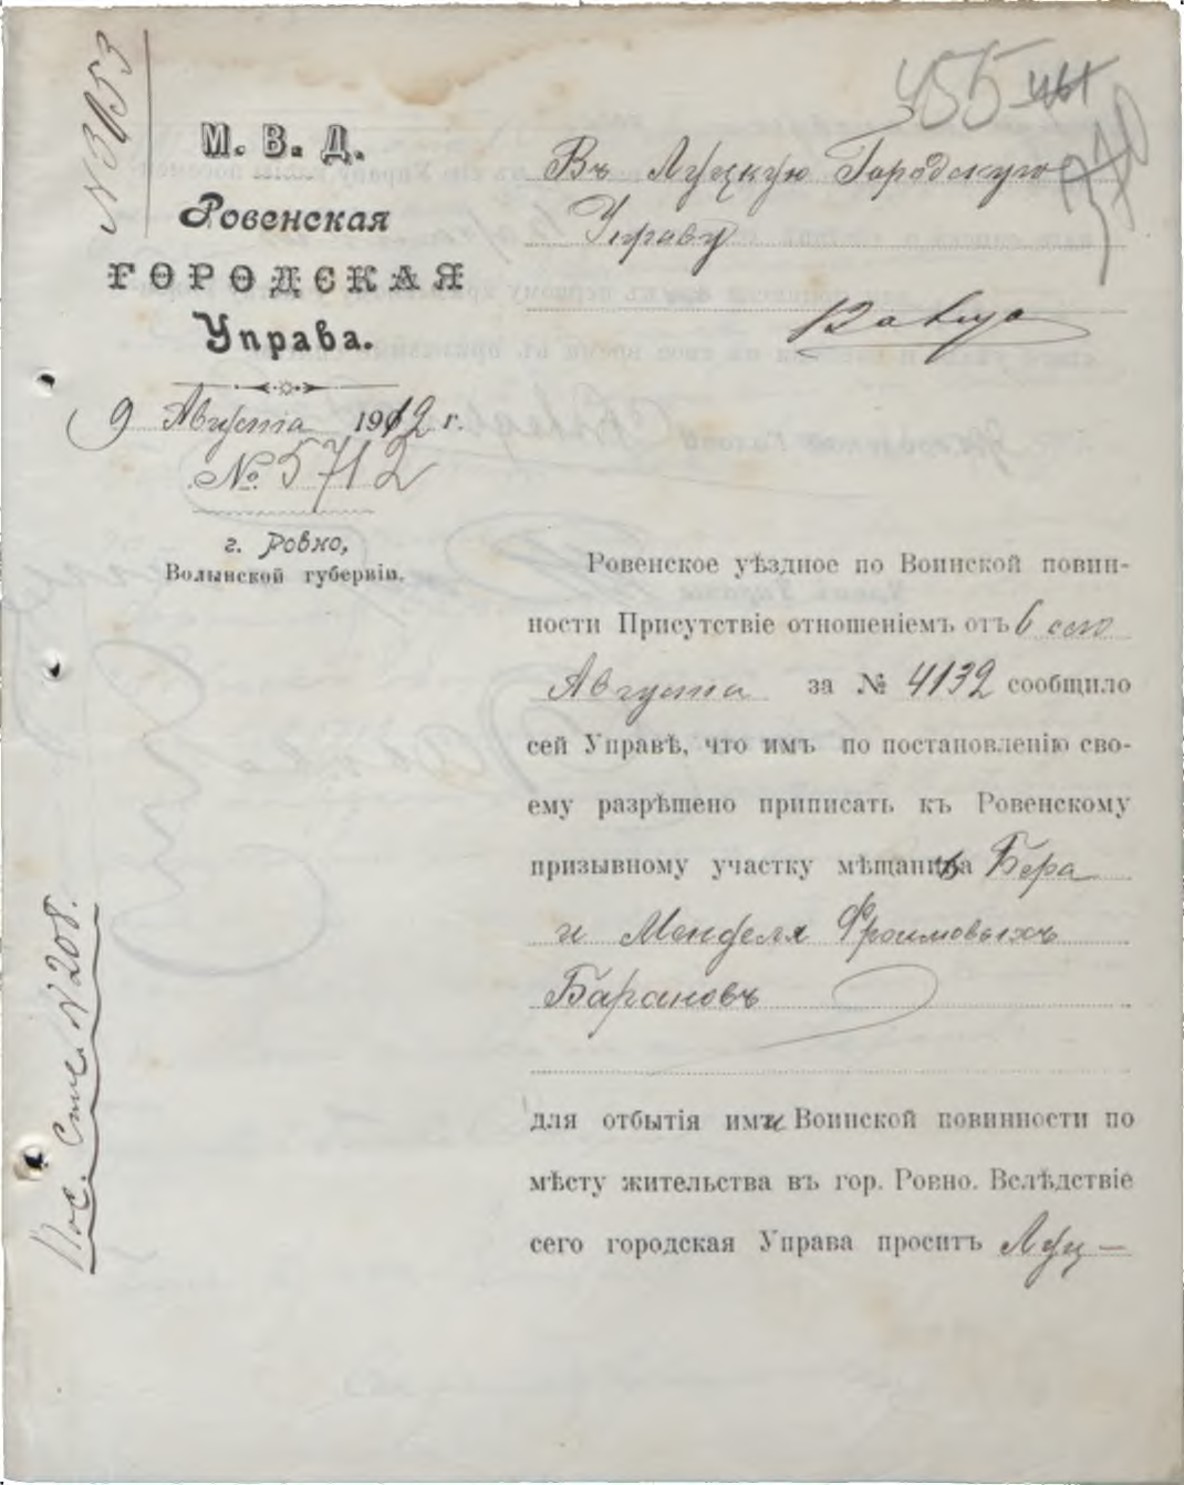 N 3153
455 461
370
М. В. Д.
Ровенская
ГОРОДСКАЯ
Управа.
9 Августа 1912 г.
№ 5712
г. Ровно,
Волынской губерніи.
Въ Луцкую Городскую
Управу
Ровенское уѣздное по Воинской повин-
ности Присутствіе отношеніемъ отъ 6 сего
Августа за № 4132 сообщило
сей Управѣ, что имъ по постановленію сво-
ему разрѣшено приписать къ Ровенскому
призывному участку мѣщанъ Бера
и Менделя Фроимовыхъ
Барановъ
для отбытія ими Воинской повинности по
мѣсту жительства въ гор. Ровно. Вслѣдствіе
сего городская Управа проситъ Луц-
Пос. Стн. N 208.